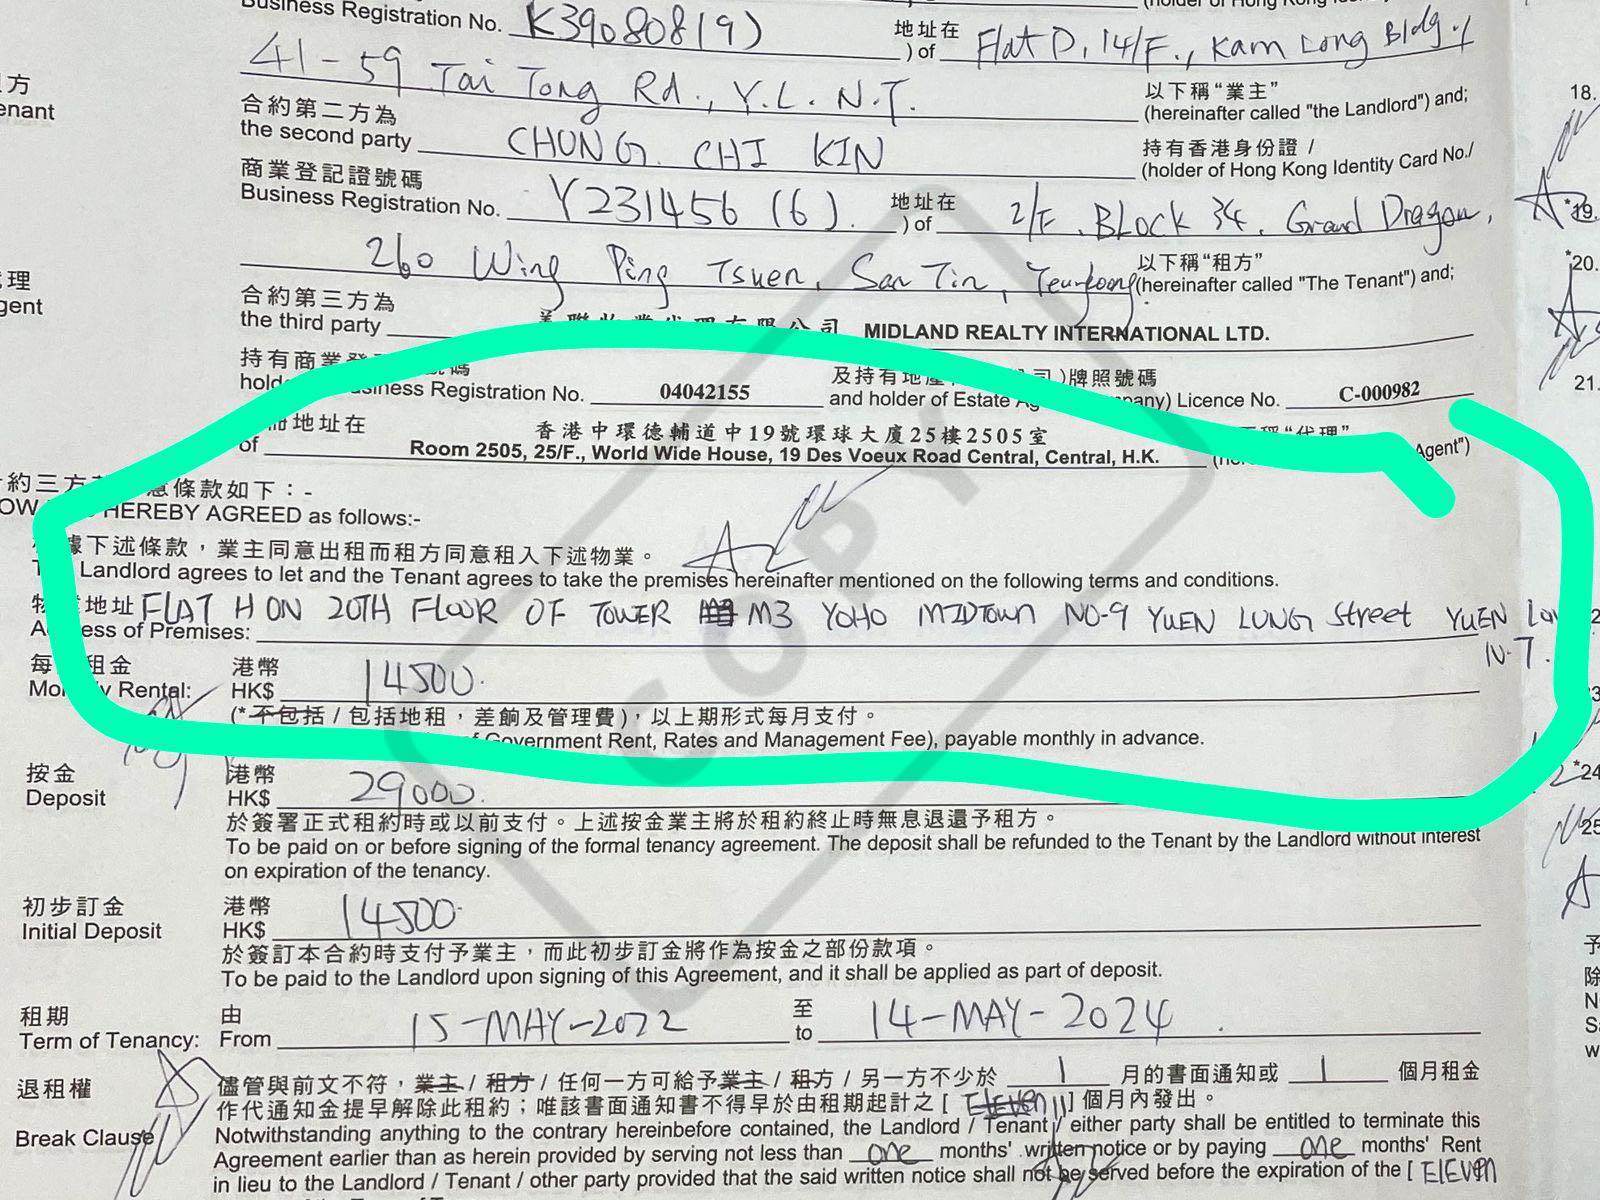 Business Registration No. K390808(9) 地址在
) of Flat D, 14/F., Kam Long Bldg.,
41-59 Tai Tong Rd., Y.L. N.T. 以下稱“業主”
(hereinafter called "the Landlord") and;
合約第二方為
the second party CHONG CHI KIN 持有香港身份證 /
(holder of Hong Kong Identity Card No./
商業登記證號碼
Business Registration No. Y231456 (6). 地址在
) of 2/F, Block 34, Grand Dragon,
260 Wing Ping Tsuen, San Tin, 以下稱“租方”
(hereinafter called "The Tenant") and;
合約第三方為
the third party MIDLAND REALTY INTERNATIONAL LTD.
持有商業登
Business Registration No. 04042155 牌照號碼
and holder of Estate Licence No. C-000982
地址在
of 香港中環德輔道中19號環球大廈25樓2505室
Room 2505, 25/F., World Wide House, 19 Des Voeux Road Central, Central, H.K. Agent")
意條款如下：-
HEREBY AGREED as follows:-
據下述條款，業主同意出租而租方同意租入下述物業。
Landlord agrees to let and the Tenant agrees to take the premises hereinafter mentioned on the following terms and conditions.
地址 FLAT H ON 20TH FLOOR OF TOWER M3 YOHO MIDTOWN NO-9 YUEN LUNG Street YUEN
of Premises: N.T.
租金 港幣
Rental: HK$ 14500.
(*不包括 / 包括地租，差餉及管理費)，以上期形式每月支付。
Government Rent, Rates and Management Fee), payable monthly in advance.
按金 港幣
Deposit HK$ 29000.
於簽署正式租約時或以前支付。上述按金業主將於租約終止時無息退還予租方。
To be paid on or before signing of the formal tenancy agreement. The deposit shall be refunded to the Tenant by the Landlord without interest
on expiration of the tenancy.
初步訂金 港幣
Initial Deposit HK$ 14500.
於簽訂本合約時支付予業主，而此初步訂金將作為按金之部份款項。
To be paid to the Landlord upon signing of this Agreement, and it shall be applied as part of deposit.
租期 由 至
Term of Tenancy: From 15-MAY-2022 to 14-MAY-2024.
退租權 儘管與前文不符，業主 / 租方 / 任何一方可給予業主 / 租方 / 另一方不少於 1 月的書面通知或 1 個月租金
作代通知金提早解除此租約；唯該書面通知書不得早於由租期起計之[ 11 ]個月內發出。
Break Clause Notwithstanding anything to the contrary hereinbefore contained, the Landlord / Tenant / either party shall be entitled to terminate this
Agreement earlier than as herein provided by serving not less than one months' written notice or by paying one months' Rent
in lieu to the Landlord / Tenant / other party provided that the said written notice shall not be served before the expiration of the [ ELEVEN
COPY
18.
*19.
*20.
21.
*24
25